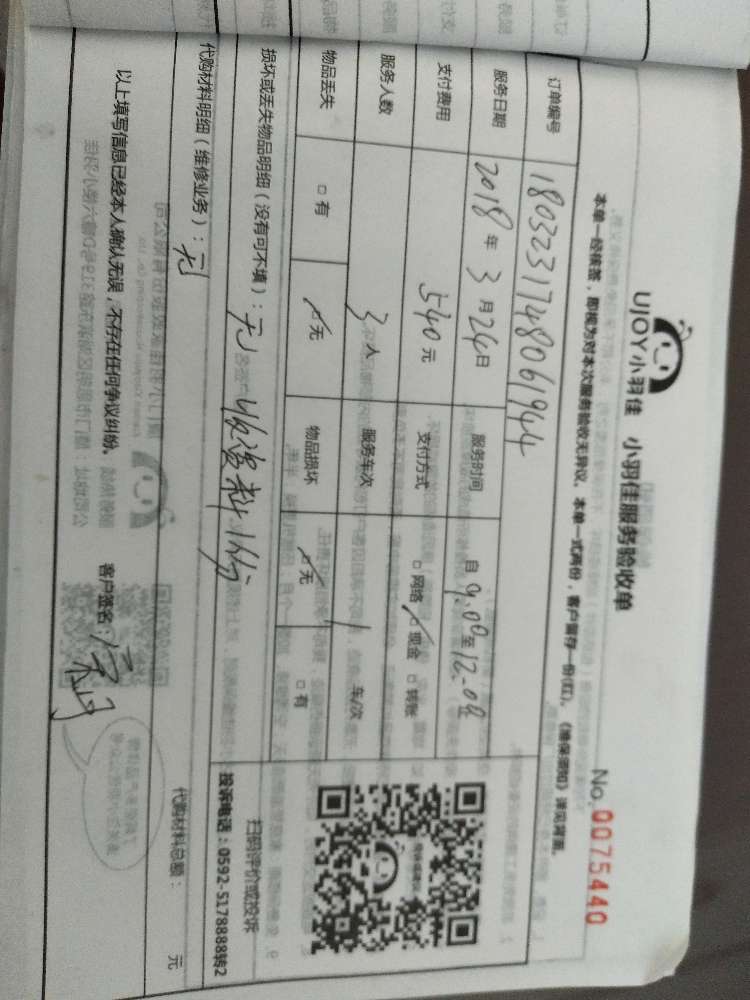 UJOY小羽佳 小羽佳服务验收单
No. 0075440
本单一经核签，即视为对本次服务验收无异议，本单一式两份，客户留存一份(红)。《维保须知》详见背面。
订单编号 1803231748061944
服务日期 2018年3月24日 服务时间 自9:00至12:00止
支付费用 540元 支付方式 □网络 ☑现金 □转账
服务人数 3人 服务车次 1车/次
物品丢失 □有 ☑无 物品损坏 ☑无 □有
损坏或丢失物品明细（没有可不填）：无 收资料1份
扫码评价或投诉
投诉电话：0592-5178888转2
代购材料明细（维修业务）：无 代购材料总额： 元
以上填写信息已经本人确认无误，不存在任何争议纠纷。 客户签名：